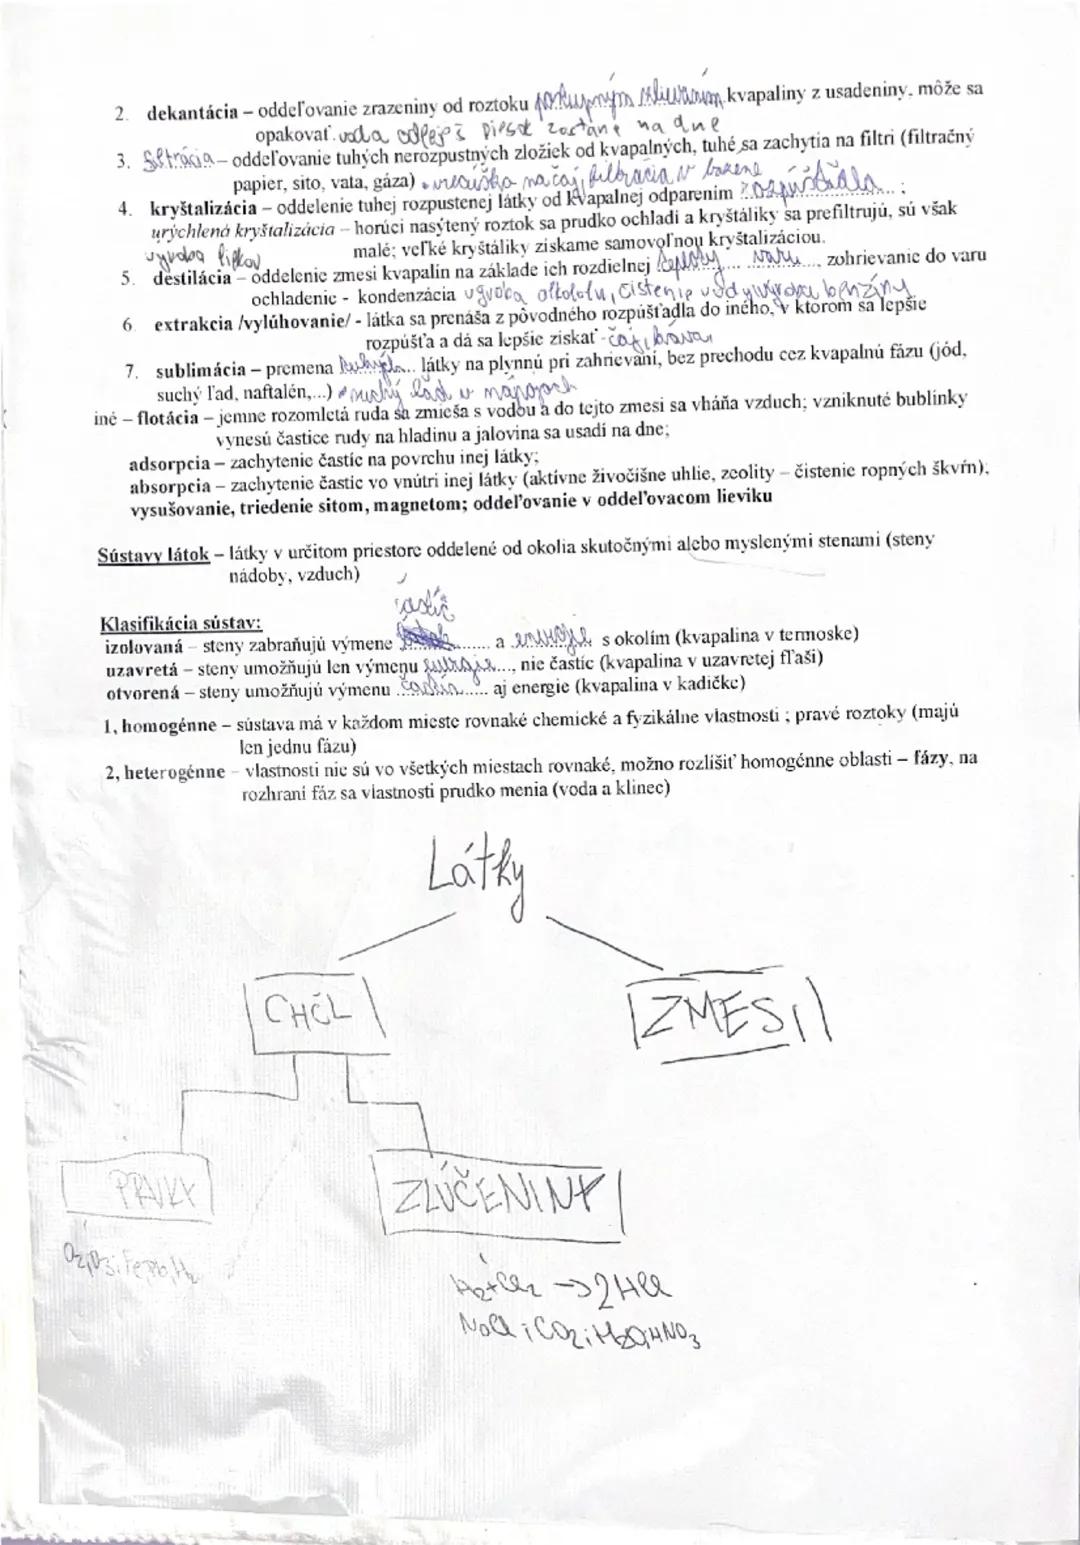 2. dekantácia – oddeľovanie zrazeniny od roztoku postupným zlievaním kvapaliny z usadeniny, môže sa
opakovať. voda odleje š piesok zostane na dne
3. filtrácia – oddeľovanie tuhých nerozpustných zložiek od kvapalných, tuhé sa zachytia na filtri (filtračný
papier, sito, vata, gáza) • vrecúško na čaj, filtrácia v bazene
4. kryštalizácia – oddelenie tuhej rozpustenej látky od kvapalnej odparením rozpúšťadla ;
urýchlená kryštalizácia – horúci nasýtený roztok sa prudko ochladí a kryštáliky sa prefiltrujú, sú však
malé; veľké kryštáliky získame samovoľnou kryštalizáciou.
výroba
5. destilácia – oddelenie zmesi kvapalín na základe ich rozdielnej teploty varu, zohrievanie do varu
ochladenie - kondenzácia výroba alkoholu, čistenie vody, výroba benzíny
6. extrakcia /vylúhovanie/ - látka sa prenáša z pôvodného rozpúšťadla do iného, v ktorom sa lepšie
rozpúšťa a dá sa lepšie získať - čaj, káva
7. sublimácia – premena tuhej látky na plynnú pri zahrievaní, bez prechodu cez kvapalnú fázu (jód,
suchý ľad, naftalén,...) • suchý ľad v nápojoch
iné – flotácia – jemne rozomletá ruda sa zmieša s vodou a do tejto zmesi sa vháňa vzduch; vzniknuté bublinky
vynesú častice rudy na hladinu a jalovina sa usadí na dne;
adsorpcia – zachytenie častíc na povrchu inej látky;
absorpcia – zachytenie častíc vo vnútri inej látky (aktívne živočíšne uhlie, zeolity – čistenie ropných škvŕn);
vysušovanie, triedenie sitom, magnetom; oddeľovanie v oddeľovacom lieviku
Sústavy látok – látky v určitom priestore oddelené od okolia skutočnými alebo myslenými stenami (steny
nádoby, vzduch)
Klasifikácia sústav:
častíc
izolovaná – steny zabraňujú výmene ........ a energie s okolím (kvapalina v termoske)
uzavretá – steny umožňujú len výmenu energie..., nie častíc (kvapalina v uzavretej fľaši)
otvorená – steny umožňujú výmenu častíc..... aj energie (kvapalina v kadičke)
1, homogénne – sústava má v každom mieste rovnaké chemické a fyzikálne vlastnosti ; pravé roztoky (majú
len jednu fázu)
2, heterogénne – vlastnosti nie sú vo všetkých miestach rovnaké, možno rozlíšiť homogénne oblasti – fázy, na
rozhraní fáz sa vlastnosti prudko menia (voda a klinec)
Látky
CHČL
ZMESI
PRVKY
ZLÚČENINY
O2, O3; Fe, Pb, H2
H2+Cl2 → 2HCl
NaCl; CO2; H2O, HNO3